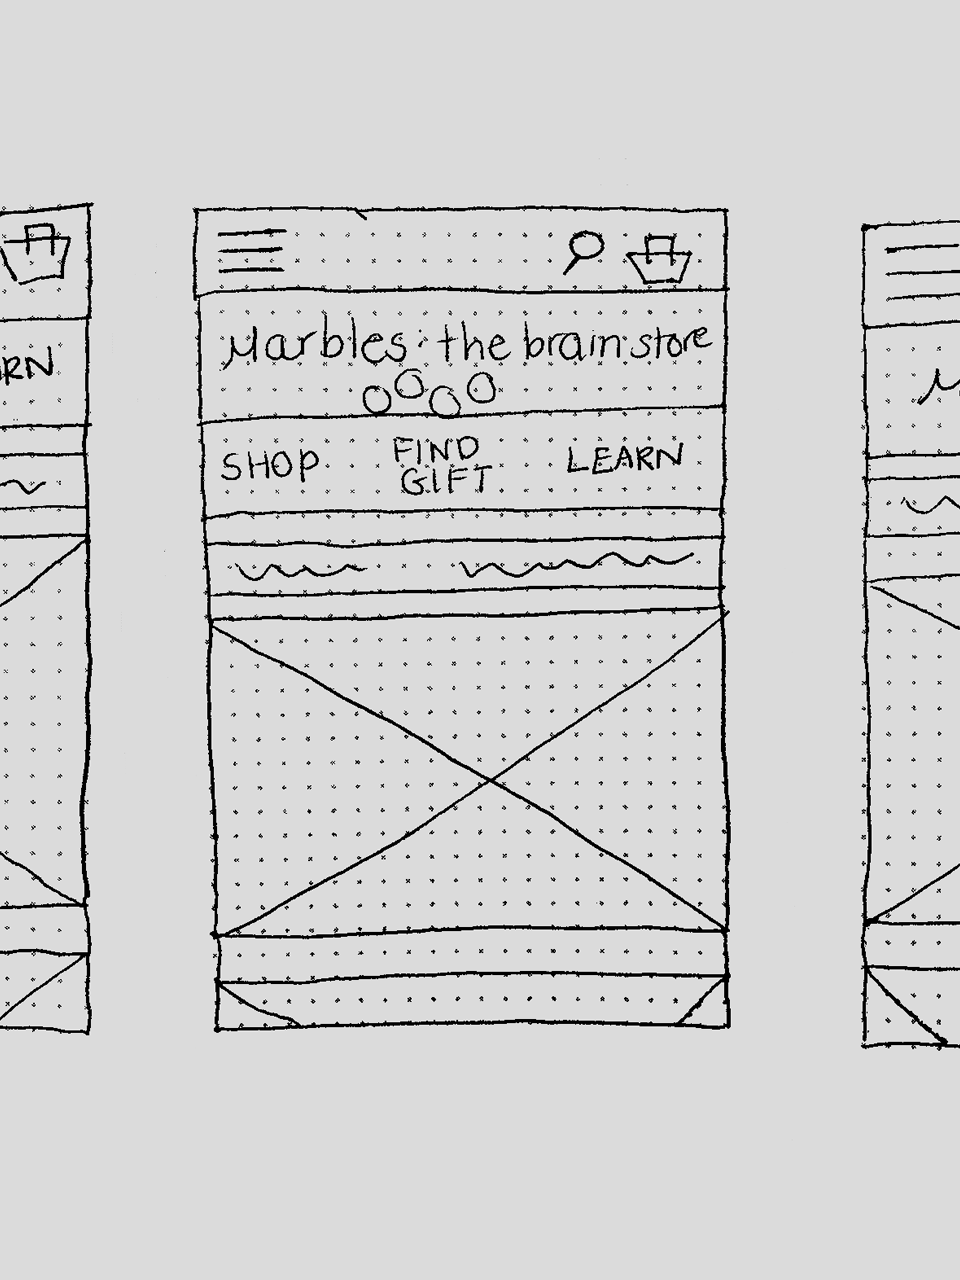 Marbles: the brain store
SHOP
FIND
GIFT
LEARN
RN